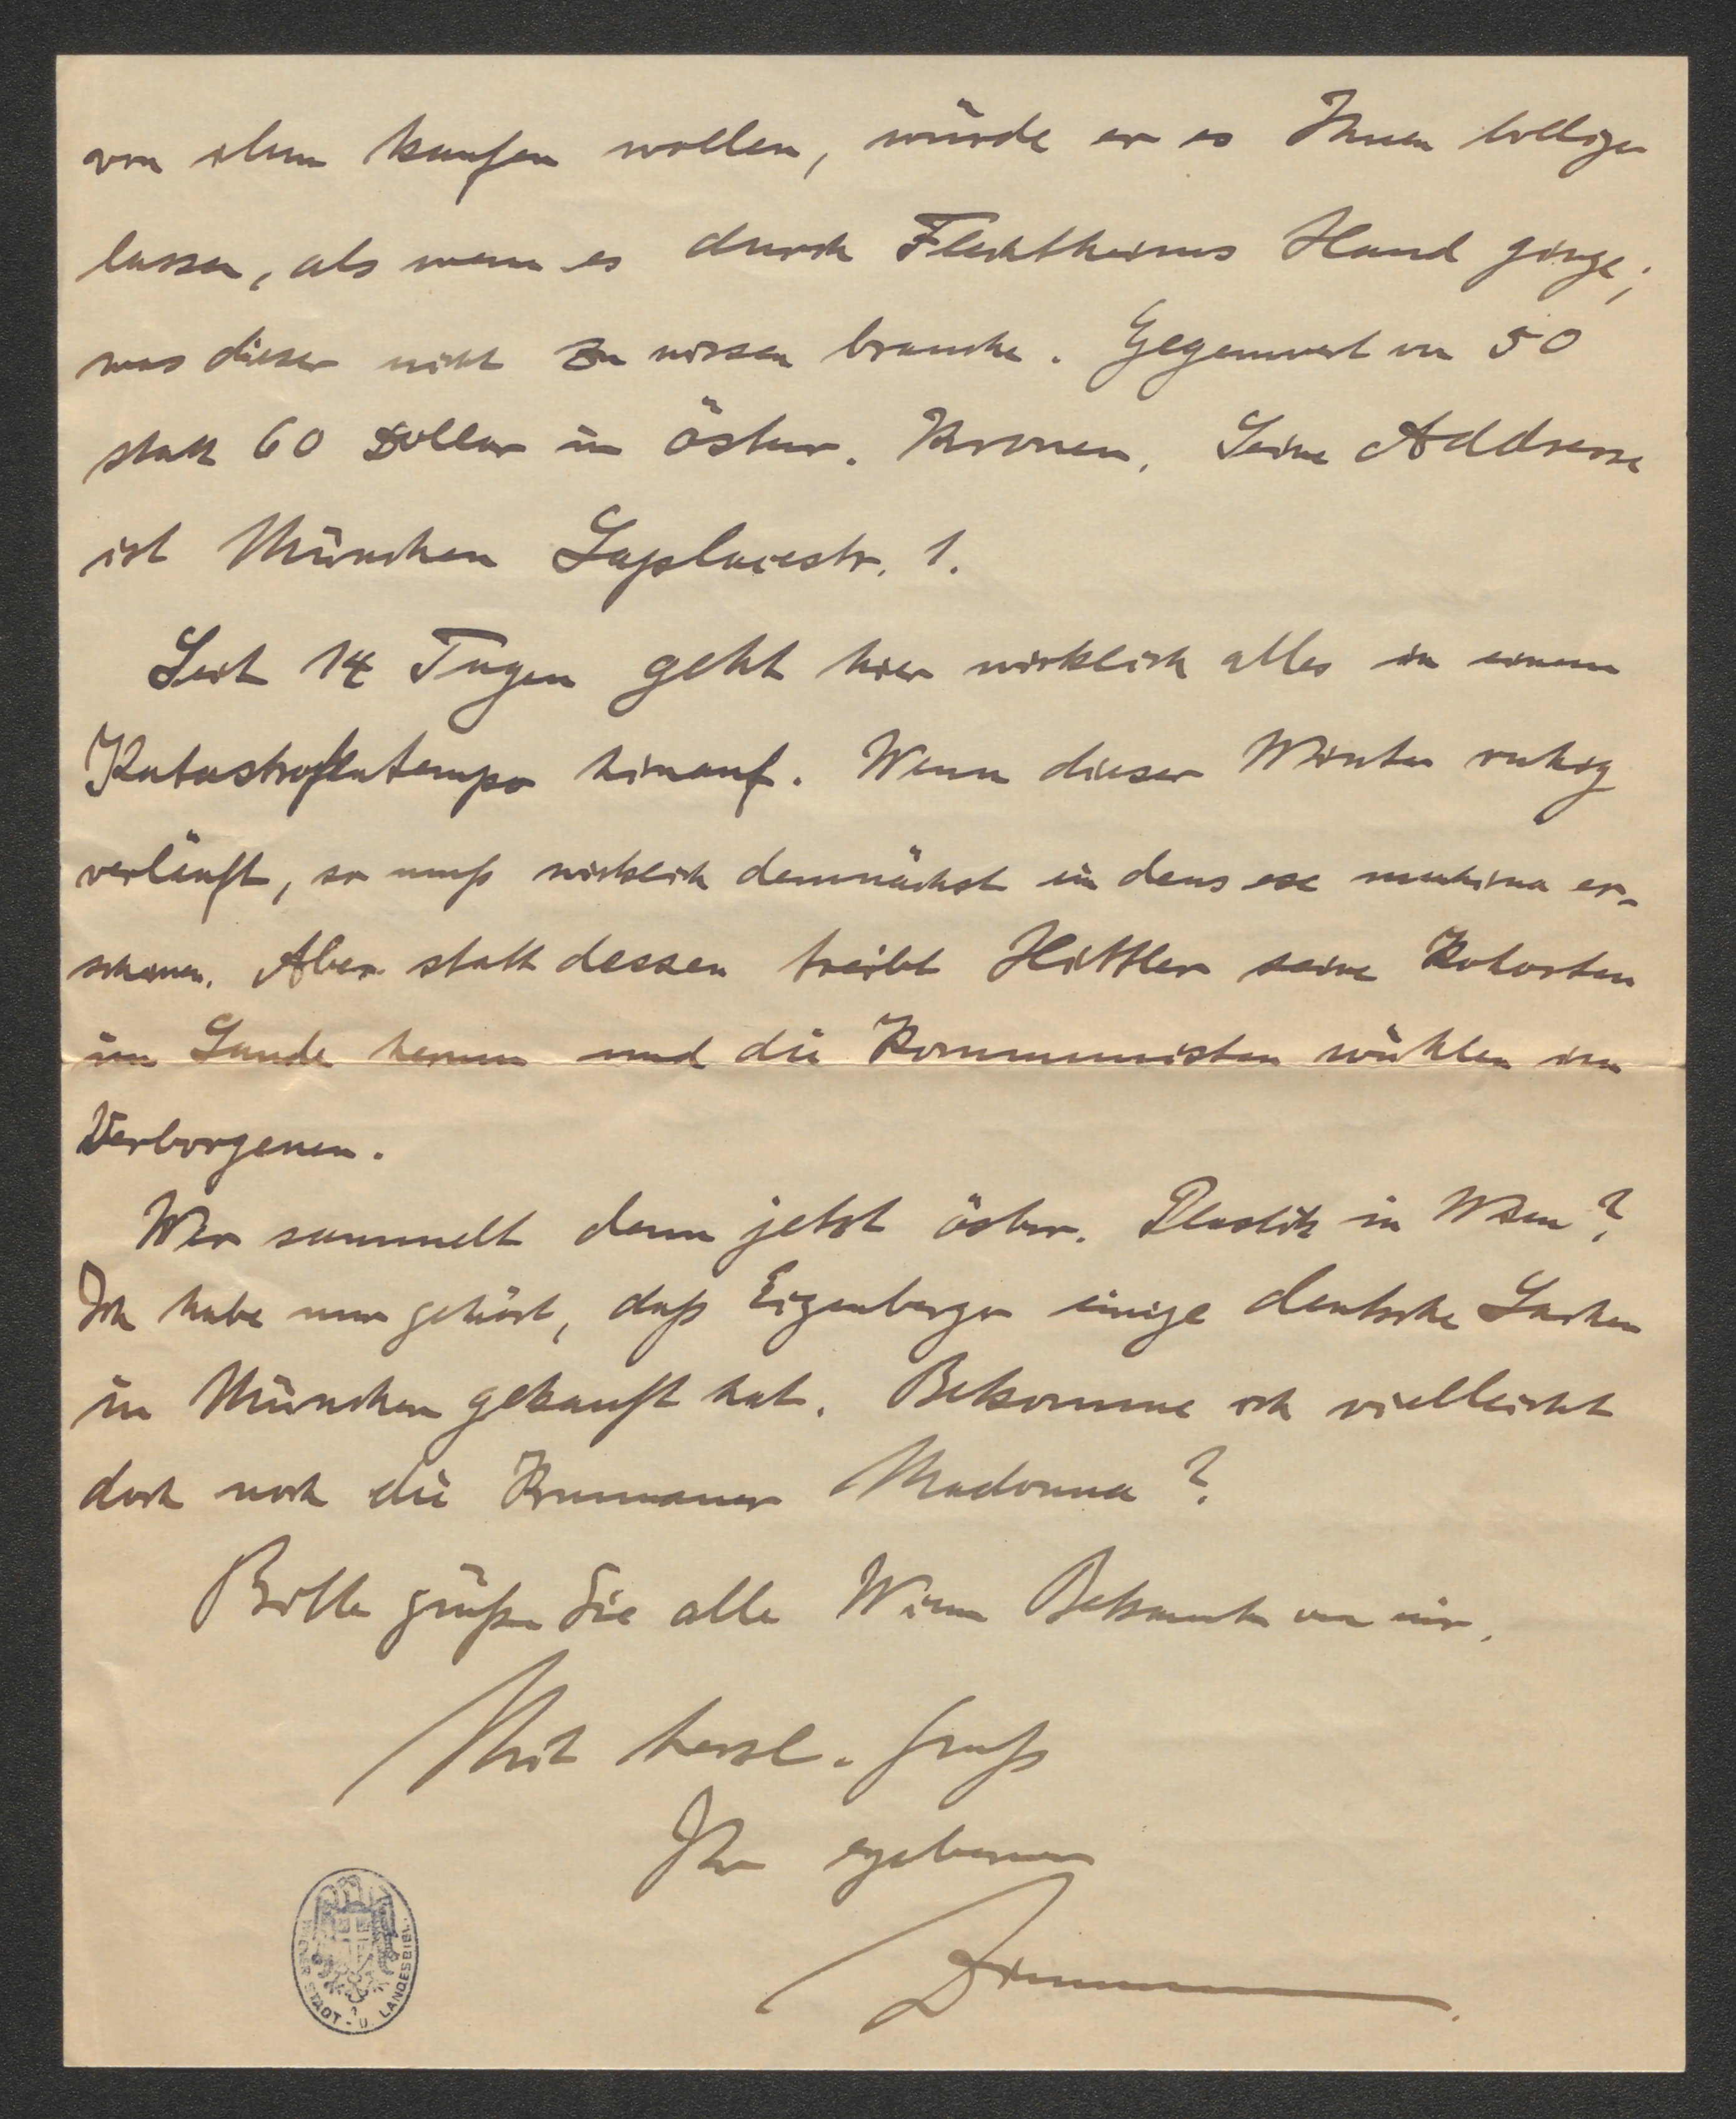 von ihm kaufen wollen, würde er es Ihnen billiger
lassen, als wenn es durch Flechtheims Hand ginge;
was dieser nicht zu wissen brauche. Gegenwert von 50
statt 60 Dollar in österr. Kronen. Seine Addresse
ist München Laplacestr. 1.
Seit 14 Tagen geht hier wirklich alles in einem
Katastrophentempo hinauf. Wenn dieser Winter ruhig
verläuft, so muß wirklich demnächst ein deus ex machina er-
scheinen. Aber statt dessen treibt Hittler seine Kohorten
im Lande herum und die Kommunisten wühlen im
Verborgenen.
Wer sammelt denn jetzt österr. Plastik in Wien?
Ich habe nur gehört, daß Eigenberger einige deutsche Sachen
in München gekauft hat. Bekomme ich vielleicht
doch noch die Krumauer Madonna?
Bitte grüßen Sie alle Wiener Bekannte von mir.
Mit herzl. Gruß
Ihr ergebener
WIENER STADT- U. LANDESBIBL.